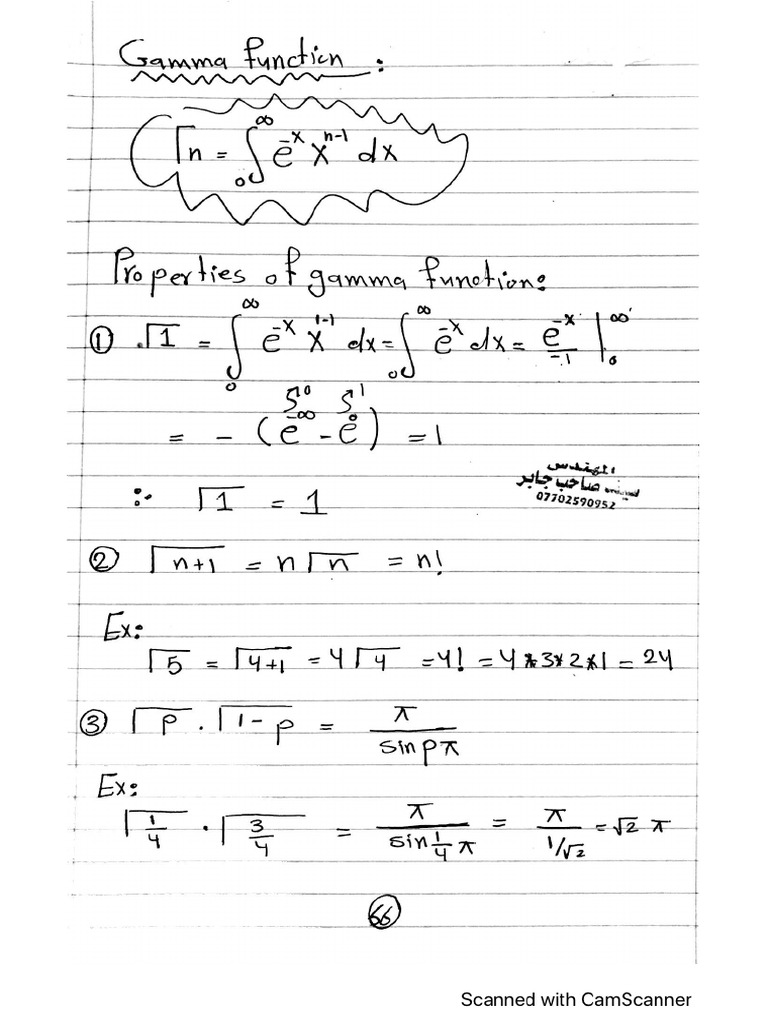 Gamma function :
Γn = ∫₀^∞ e^-x x^n-1 dx
Properties of gamma function:
① Γ1 = ∫₀^∞ e^-x x^1-1 dx = ∫₀^∞ e^-x dx = e^-x/-1 |₀^∞
0 1
= - (e^-∞ - e^0) = 1
المهندس
سيف صاحب جابر
07702590952
∴ Γ1 = 1
② Γn+1 = n Γn = n!
Ex:
Γ5 = Γ4+1 = 4 Γ4 = 4! = 4*3*2*1 = 24
③ Γp . Γ1-p = π/sin pπ
Ex:
Γ1/4 . Γ3/4 = π/sin 1/4 π = π/1/√2 = √2 π
66
Scanned with CamScanner